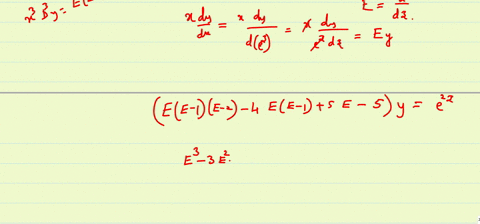 E = d/dz.
x dy/dx = x dy/d(e^z) = x dy/e^z dz = Ey
(E(E-1)(E-2)-4 E(E-1)+5 E-5)y = e^2z
E^3-3E^2